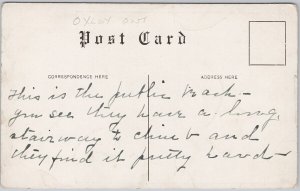 OXLEY ONT
Post Card
CORRESPONDENCE HERE
ADDRESS HERE
This is the public Beach -
you see they have a long
stairway to climb and
they find it pretty hard -